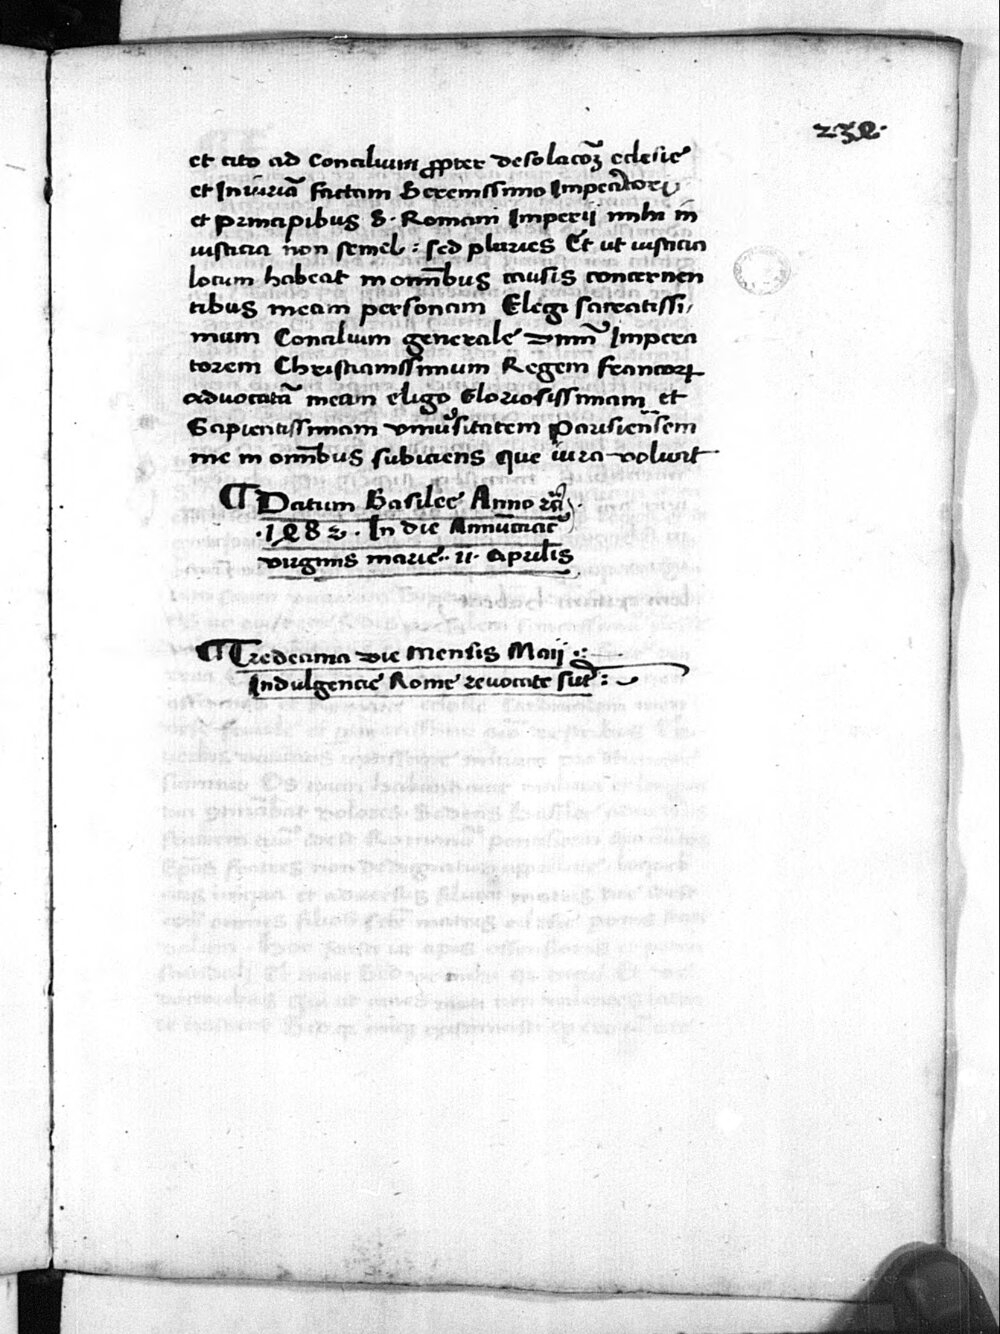 234·
et cito ad Concilium ꝓpter desolacōꝫ ecclesie
et Iniuriā factam Serenissimo Imperatori
et principibus S. Romani Imperij mihi in
iusticia non semel : sed pluries Et ut iusticia
locum habeat in omībus causis concernen
tibus meam personam Elegi sacratissi
mum Concilium generale dnm̄ Impera
torem Christianissimum Regem francoꝝ
advocatā meam eligo Gloriosissimam et
Sapientissimam vniūsitatem parisiensem
me in omībus subiciens que iura volunt
¶ Datum Basilee Anno
·1482· In die Annūciac̄
virginis marie· 11· Aprilis
¶ Tredecima die Mensis Maij :·
Indulgencie Rome revocate sūt :